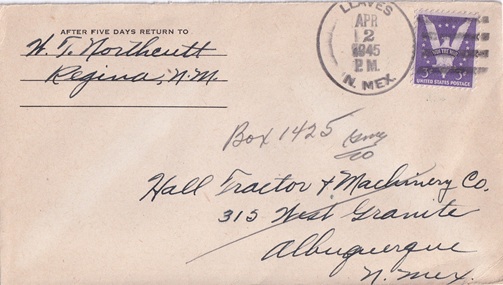 AFTER FIVE DAYS RETURN TO
W. T. Northcutt
Regina, N.M.
LLAVES
APR
2
1945
P.M.
N. MEX.
WIN THE WAR
3¢ 3¢
UNITED STATES POSTAGE
Box 1425
Hall Tractor & Machinery Co.
315 West Granite
Albuquerque
N. Mex.